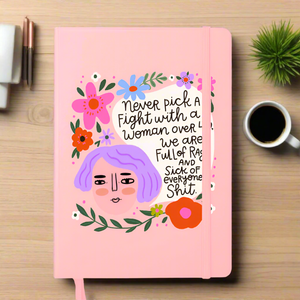 Never pick A
Fight with a
woman over
we are
Full of Rag
AND
Sick of
everyone
Shit.